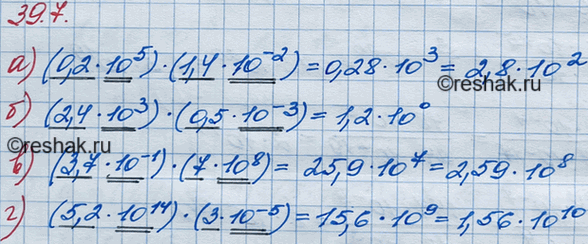 39.7.
а) (0,2 · 10⁵) · (1,4 · 10⁻²) = 0,28 · 10³ = 2,8 · 10²
©reshak.ru
б) (2,4 · 10³) · (0,5 · 10⁻³) = 1,2 · 10⁰
©reshak.ru
в) (3,7 · 10⁻¹) · (7 · 10⁸) = 25,9 · 10⁷ = 2,59 · 10⁸
©reshak.ru
г) (5,2 · 10¹⁴) · (3 · 10⁻⁵) = 15,6 · 10⁹ = 1,56 · 10¹⁰